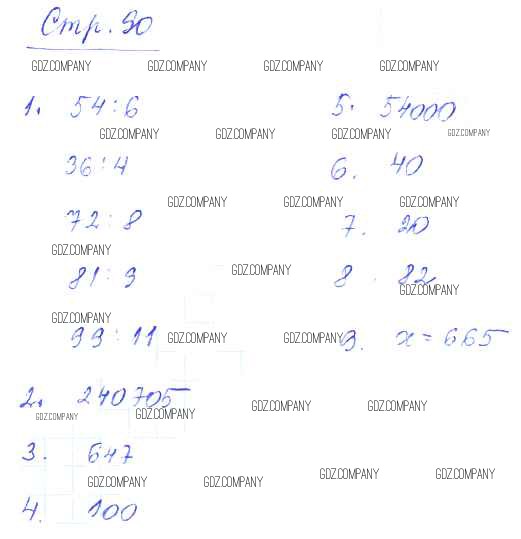 Стр. 90
GDZ.COMPANY GDZ.COMPANY GDZ.COMPANY GDZ.COMPANY
1. 54:6
5. 54000
GDZ.COMPANY GDZ.COMPANY GDZ.COMPANY GDZ.COMPANY
36:4
6. 40
GDZ.COMPANY GDZ.COMPANY GDZ.COMPANY
72:8
7. 20
GDZ.COMPANY
81:9
8. 82
GDZ.COMPANY GDZ.COMPANY
GDZ.COMPANY
99:11
9. x = 665
GDZ.COMPANY GDZ.COMPANY
2. 240705
GDZ.COMPANY GDZ.COMPANY GDZ.COMPANY GDZ.COMPANY
3. 647
GDZ.COMPANY GDZ.COMPANY GDZ.COMPANY GDZ.COMPANY
4. 100